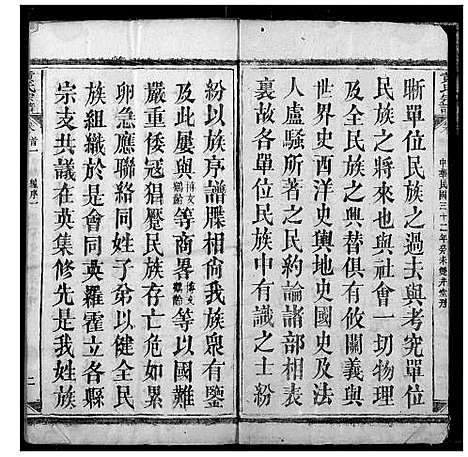 晰單位民族之過去與考究單位
民族之將來也與社會一切物理
及全民族之興替俱有攸關義與
世界史西洋史輿地史國史及詩
人盧騷所著民約論諸部相表
裏故各單位民族中有識之士粉
中華民國三十二年癸未雙井堂刊
紛以族序譜牒相尚我族衆有鑒
及此屢與 博文 鶴齡 等商畧 觀齡 等以國難
嚴重倭寇猖獗民族存亡危如累
卵急應聯絡同姓子弟以健全民
族組織於會同英羅霍立各縣
宗支共議在英集修先是我姓族
黃氏宗譜
卷首一
二